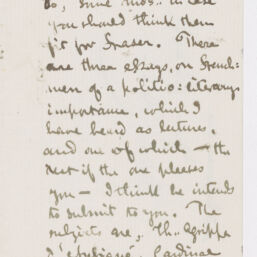 so, some mss. in case
you should think them
fit for Fraser. There
are three essays, on French-
men of a politico-literary
importance, which I
have heard as lectures,
and one of which — the
next if the one pleases
you — I think he intends
to submit to you. The
subjects are, Th. Agrippa
d'Aubigné, Cardinal